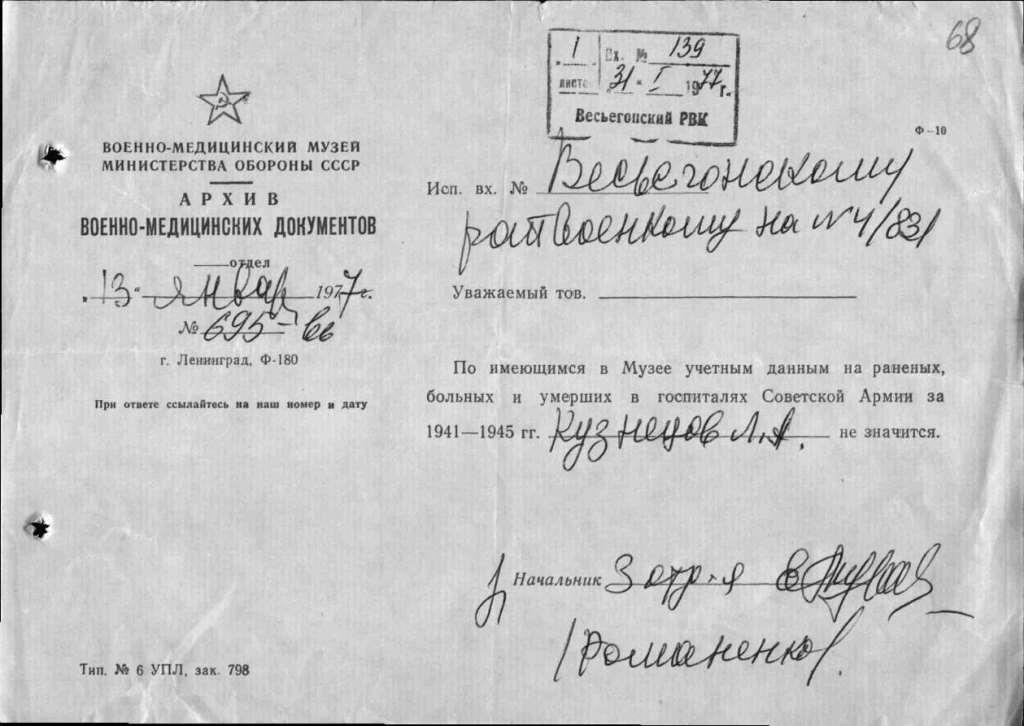 68
1 Вх. № 139
листе 31 - I 1977 г.
Весьегонский РВК
Ф—10
ВОЕННО-МЕДИЦИНСКИЙ МУЗЕЙ
МИНИСТЕРСТВА ОБОРОНЫ СССР
АРХИВ
ВОЕННО-МЕДИЦИНСКИХ ДОКУМЕНТОВ
отдел
"13" январ 1977 г.
№ 695-
г. Ленинград, Ф-180
При ответе ссылайтесь на наш номер и дату
Исп. вх. № Весьегонскому
райвоенкому на № 4/831
Уважаемый тов.
По имеющимся в Музее учетным данным на раненых,
больных и умерших в госпиталях Советской Армии за
1941—1945 гг. Кузнецов Л.А. не значится.
Начальник 3 отд-я
/Романенко/
Тип. № 6 УПЛ, зак. 798